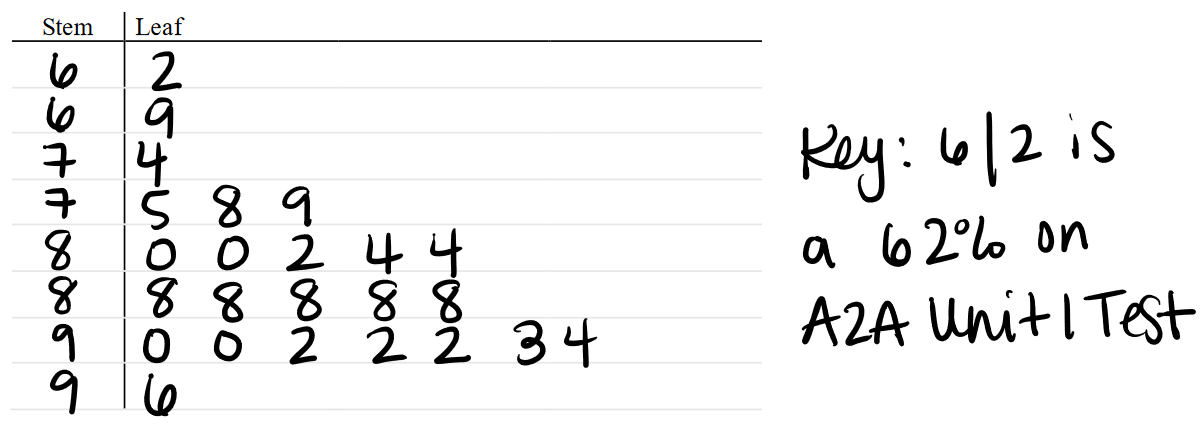 Stem | Leaf
6 | 2
6 | 9
7 | 4
7 | 5 8 9
8 | 0 0 2 4 4
8 | 8 8 8 8 8
9 | 0 0 2 2 2 3 4
9 | 6
Key: 6|2 is
a 62% on
A2A Unit 1 Test